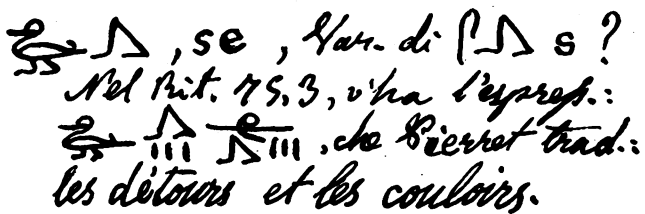 𓅭𓂻 , se , Var. di 𓋴𓂻 s ?
Nel Rit. 75,3, v'ha l'espress.:
𓅭𓂻𓏥 , che Pierret trad.:
les détours et les couloirs.